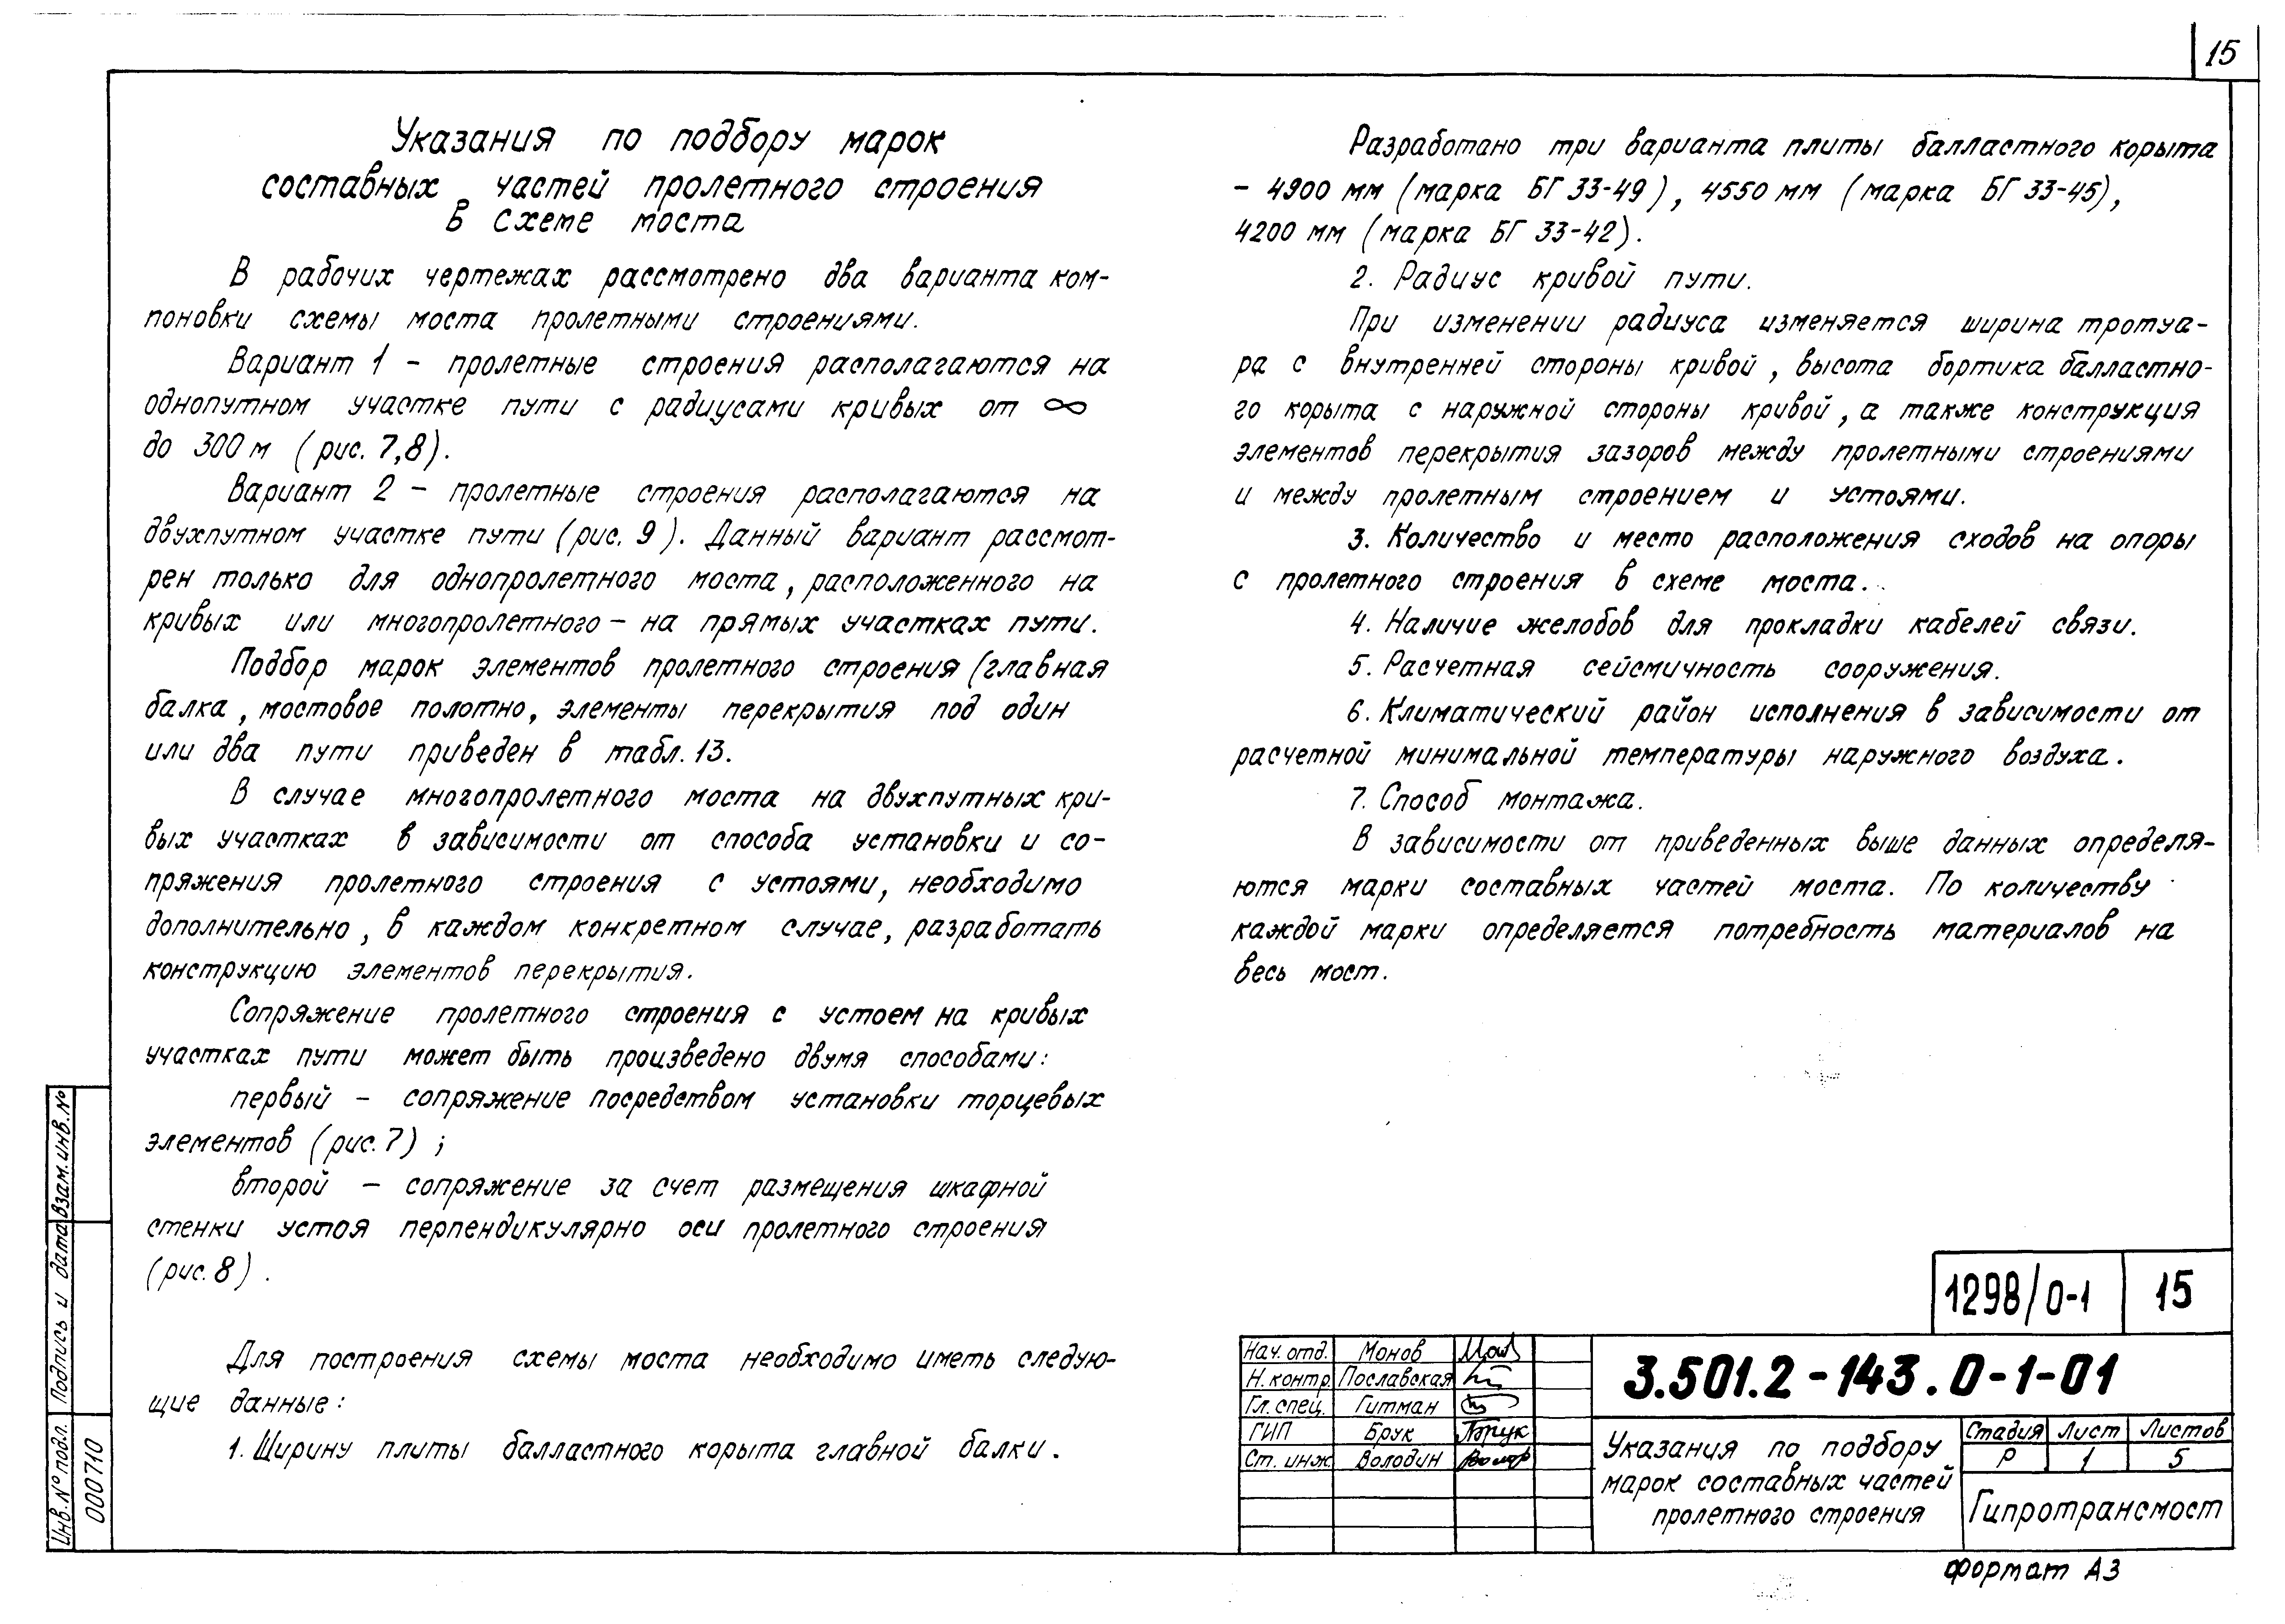 15
Указания по подбору марок
составных частей пролетного строения
в схеме моста
В рабочих чертежах рассмотрено два варианта ком-
поновки схемы моста пролетными строениями.
Вариант 1 – пролетные строения располагаются на
однопутном участке пути с радиусами кривых от ∞
до 300 м (рис. 7,8).
Вариант 2 – пролетные строения располагаются на
двухпутном участке пути (рис. 9). Данный вариант рассмот-
рен только для однопролетного моста, расположенного на
кривых или многопролетного – на прямых участках пути.
Подбор марок элементов пролетного строения (главная
балка, мостовое полотно, элементы перекрытия под один
или два пути приведен в табл. 13.
В случае многопролетного моста на двухпутных кри-
вых участках в зависимости от способа установки и со-
пряжения пролетного строения с устоями, необходимо
дополнительно, в каждом конкретном случае, разработать
конструкцию элементов перекрытия.
Сопряжение пролетного строения с устоем на кривых
участках пути может быть произведено двумя способами:
первый – сопряжение посредством установки торцевых
элементов (рис. 7) ;
второй – сопряжение за счет размещения шкафной
стенки устоя перпендикулярно оси пролетного строения
(рис. 8) .
Для построения схемы моста необходимо иметь следую-
щие данные:
1. Ширину плиты балластного корыта главной балки.
Разработано три варианта плиты балластного корыта
– 4900 мм (марка БГ 33-49), 4550 мм (марка БГ 33-45),
4200 мм (марка БГ 33-42).
2. Радиус кривой пути.
При изменении радиуса изменяется ширина тротуа-
ра с внутренней стороны кривой, высота бортика балластно-
го корыта с наружной стороны кривой, а также конструкция
элементов перекрытия зазоров между пролетными строениями
и между пролетным строением и устоями.
3. Количество и место расположения сходов на опоры
с пролетного строения в схеме моста.
4. Наличие желобов для прокладки кабелей связи.
5. Расчетная сейсмичность сооружения.
6. Климатический район исполнения в зависимости от
расчетной минимальной температуры наружного воздуха.
7. Способ монтажа.
В зависимости от приведенных выше данных определя-
ются марки составных частей моста. По количеству
каждой марки определяется потребность материалов на
весь мост.
Инв. № подл. Подпись и дата Взам. инв. №
000710
1298/0-1 15
Нач. отд. Монов
Н. контр. Пославская
Гл. спец. Гитман
ГИП Брук Брук
Ст. инж. Володин
3.501.2-143.0-1-01
Указания по подбору
марок составных частей
пролетного строения
Стадия Лист Листов
Р 1 5
Гипротрансмост
Формат А3